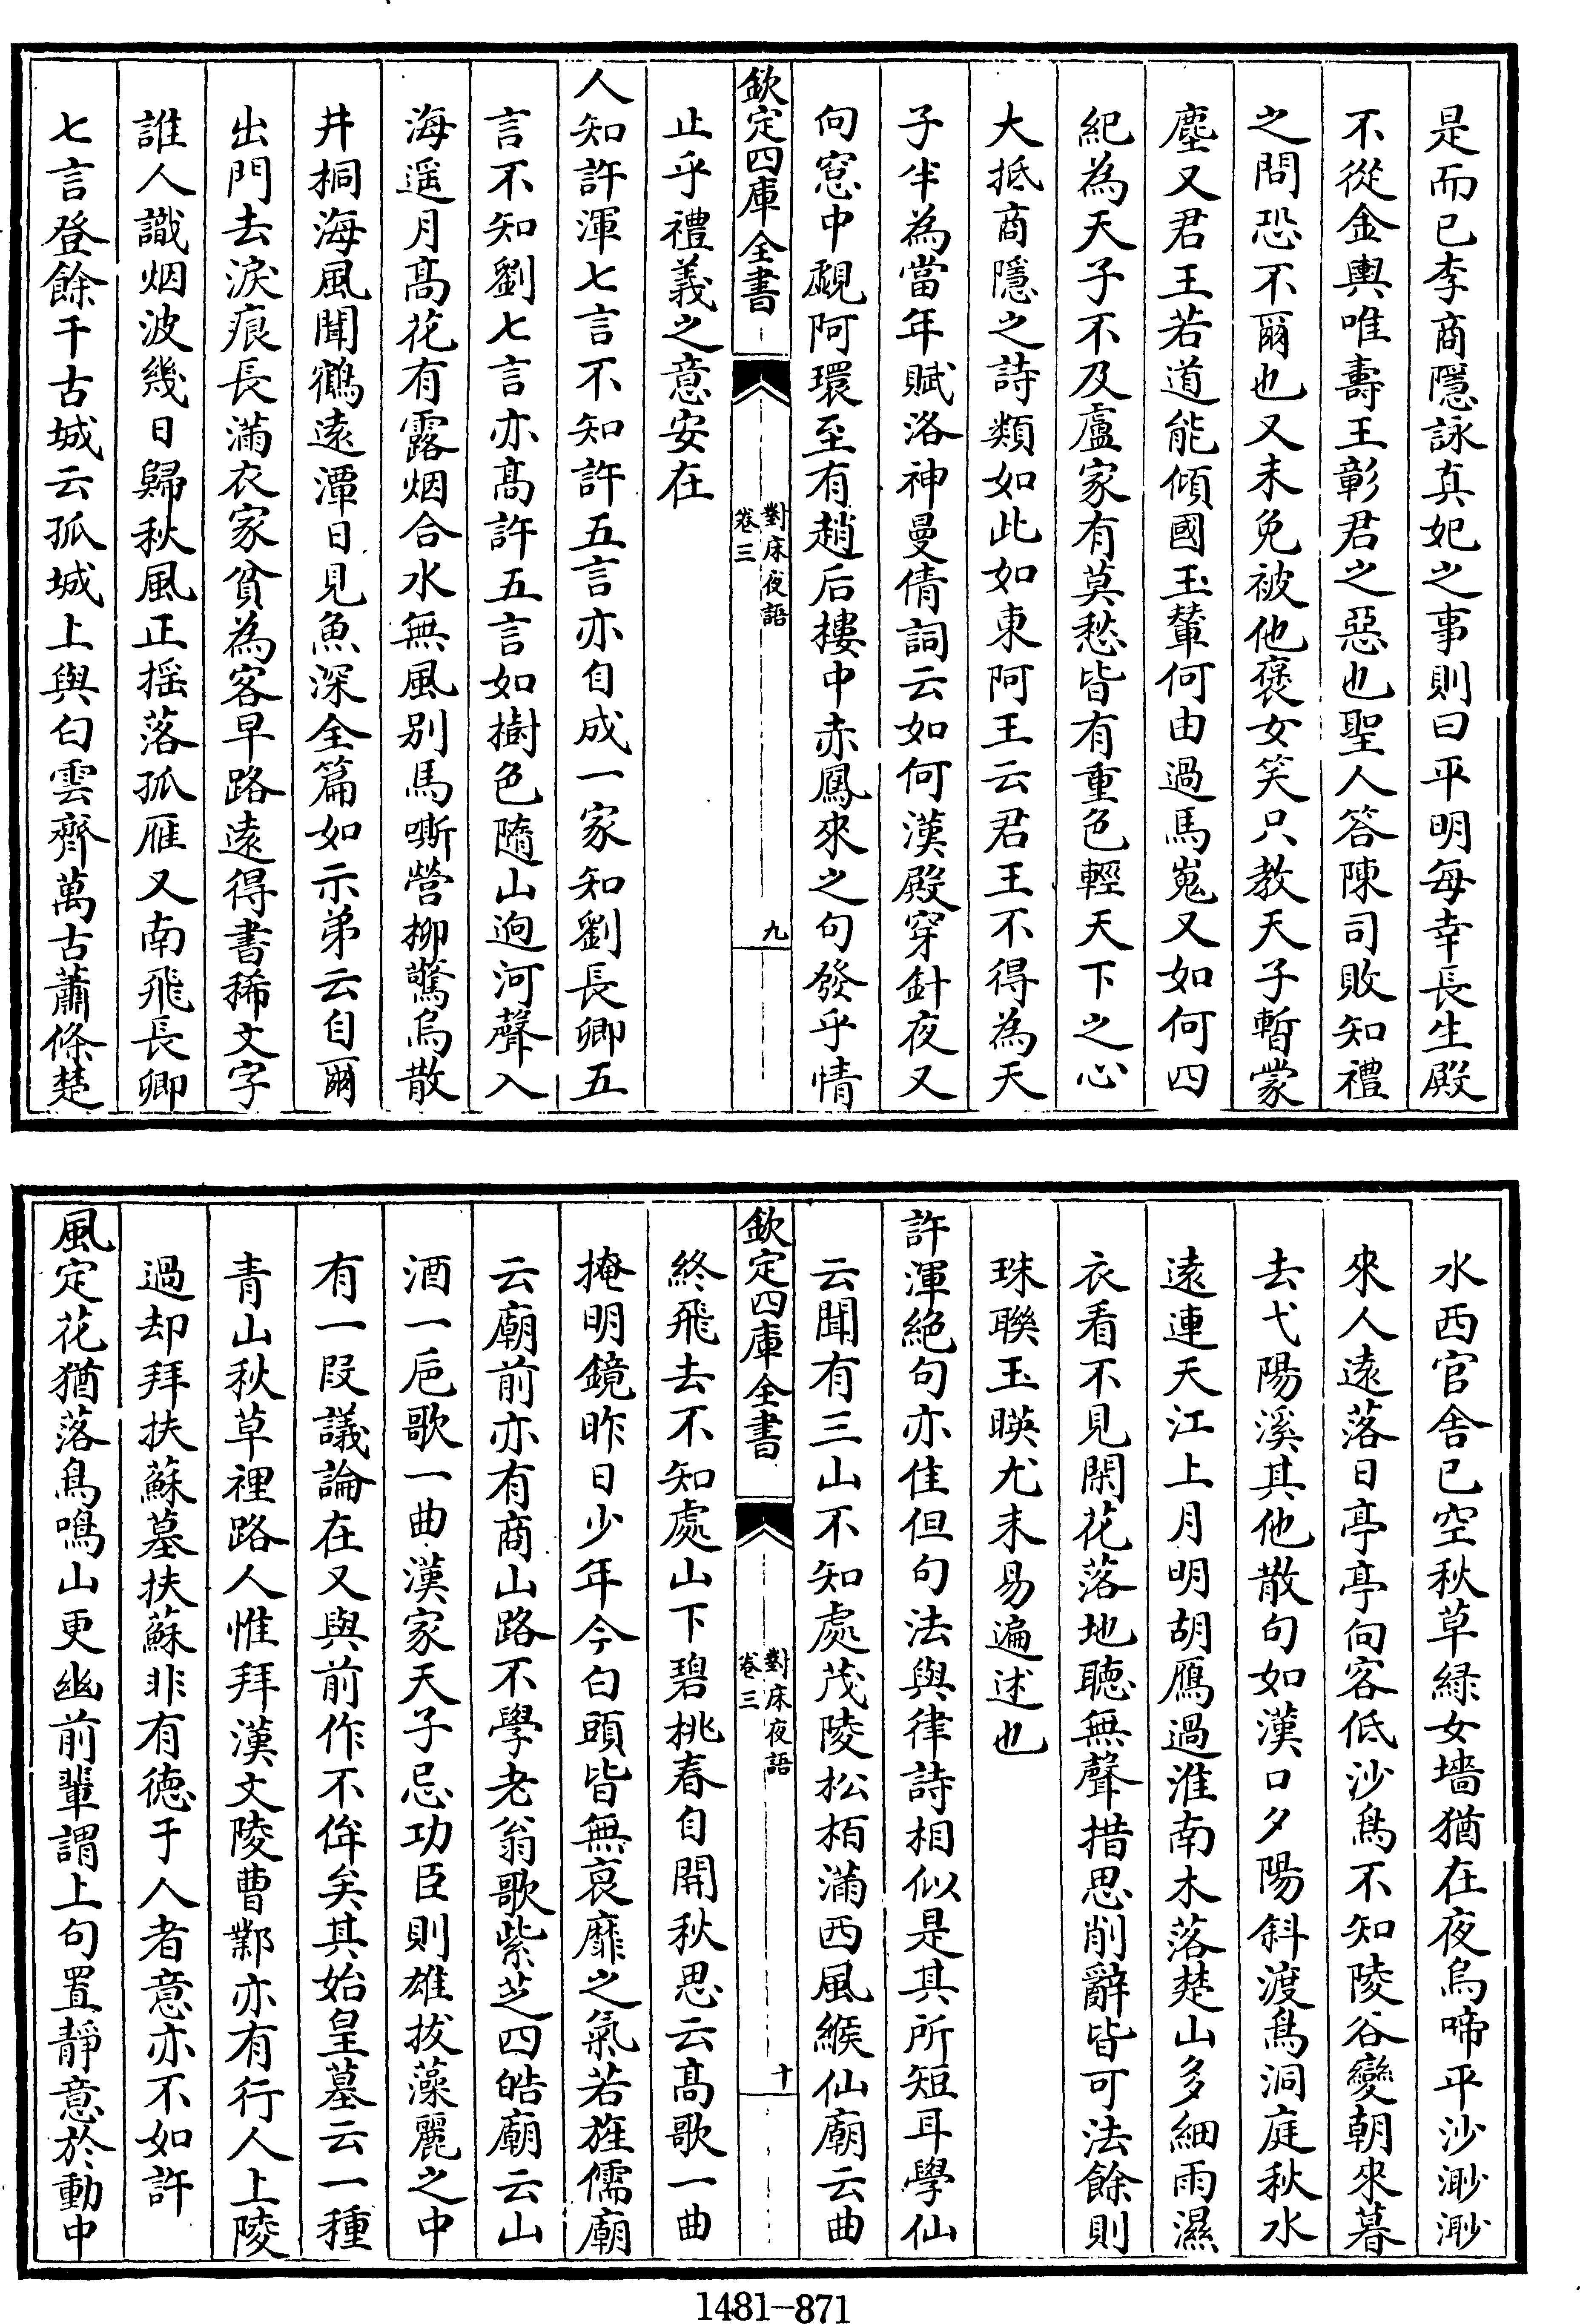 是而已李商隱詠真妃之事則曰平明每幸長生殿
不從金輿唯壽王彰君之惡也聖人答陳司敗知禮
之問恐不爾也又未免被他褒女笑只教天子暫蒙
塵又君王若道能傾國玉輦何由過馬嵬又如何四
紀為天子不及盧家有莫愁皆有重色輕天下之心
大抵商隱之詩類如此如東阿王云君王不得為天
子半為當年賦洛神曼倩詞云如何漢殿穿針夜又
向窓中覷阿環至有趙后樓中赤鳳來之句發乎情
欽定四庫全書
對床夜語
卷三
九
止乎禮義之意安在
人知許渾七言不知許五言亦自成一家知劉長卿五
言不知劉七言亦高許五言如樹色隨山逈河聲入
海遥月高花有露烟合水無風别馬嘶營柳驚烏散
井桐海風聞鶴遠潭日見魚深全篇如示弟云自爾
出門去淚痕長滿衣家貧為客早路遠得書稀文字
誰人識烟波幾日歸秋風正揺落孤雁又南飛長卿
七言登餘干古城云孤城上與白雲齊萬古蕭條楚
水西官舍已空秋草緑女墻猶在夜烏啼平沙渺渺
來人遠落日亭亭向客低沙鳥不知陵谷變朝來暮
去弋陽溪其他散句如漢口夕陽斜渡鳥洞庭秋水
遠連天江上月明胡鴈過淮南木落楚山多細雨濕
衣看不見閑花落地聽無聲措思削辭皆可法餘則
珠聯玉暎尤未易遍述也
許渾絶句亦佳但句法與律詩相似是其所短耳學仙
云聞有三山不知處茂陵松栢滿西風緱仙廟云曲
欽定四庫全書
對床夜語
卷三
十
終飛去不知處山下碧桃春自開秋思云高歌一曲
掩明鏡昨日少年今白頭皆無衰靡之氣若旌儒廟
云廟前亦有商山路不學老翁歌紫芝四皓廟云山
酒一巵歌一曲漢家天子忌功臣則雄拔藻麗之中
有一段議論在又與前作不侔矣其始皇墓云一種
青山秋草裡路人惟拜漢文陵曹鄴亦有行人上陵
過却拜扶蘇墓扶蘇非有德于人者意亦不如許
風定花猶落鳥鳴山更幽前輩謂上句置靜意於動中
1481—871